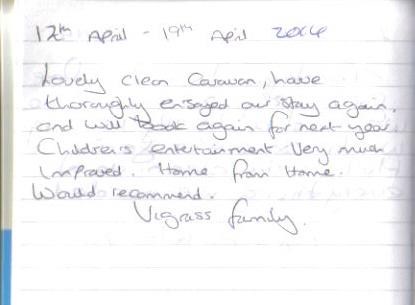 12th April - 19th April 2014
Lovely Clean Caravan, have
thoroughly enjoyed our stay again.
and will book again for next year
Children's entertainment Very much
Improved. Home from Home.
Would recommend.
Vigrass family.